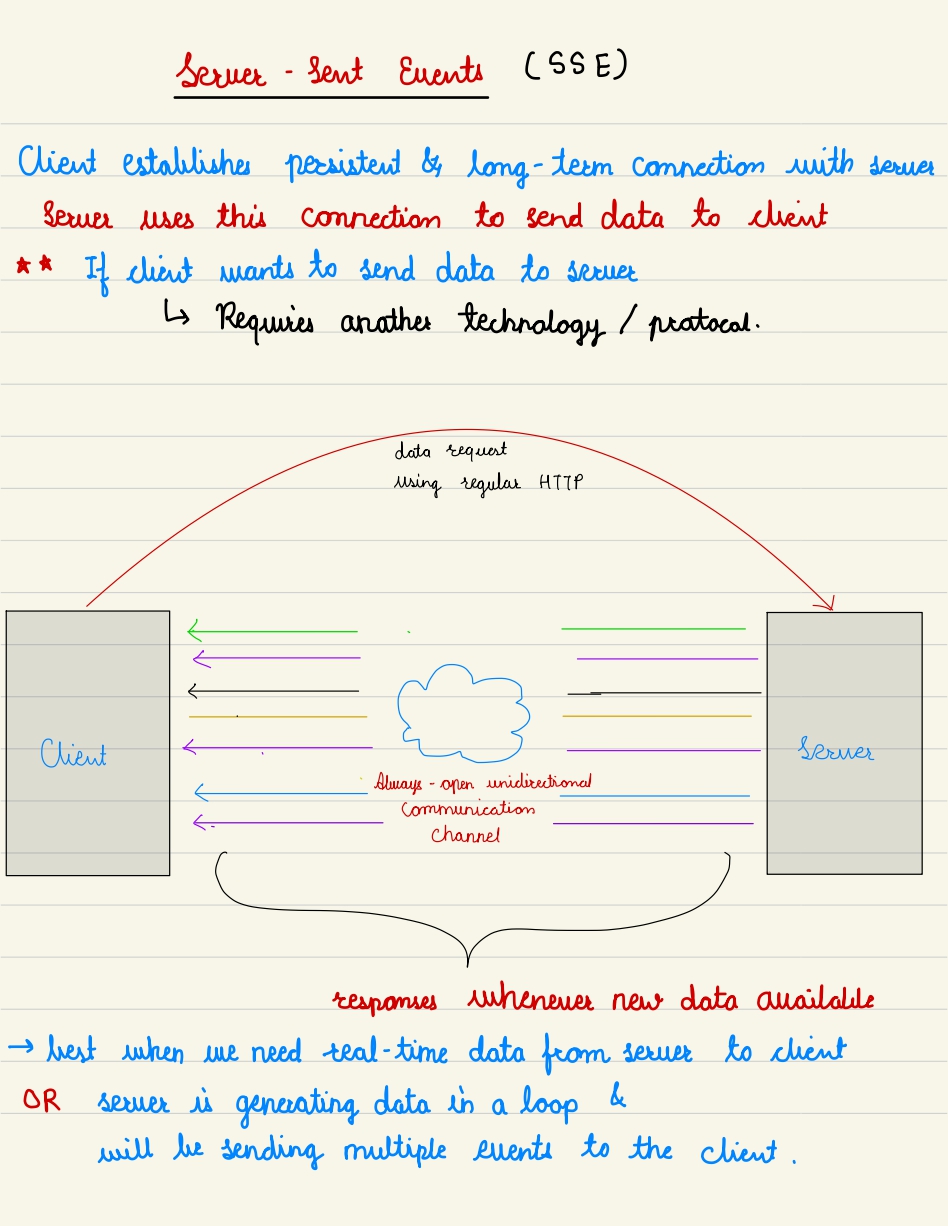 Server - Sent Events (SSE)
Client establishes persistent & long-term connection with server
Server uses this connection to send data to client
** If client wants to send data to server
↳ Requires another technology / protocal.
data request
using regular HTTP
Client
Server
Always - open unidirectional
Communication
Channel
responses whenever new data available
→ best when we need real-time data from server to client
OR server is generating data in a loop &
will be sending multiple events to the client.